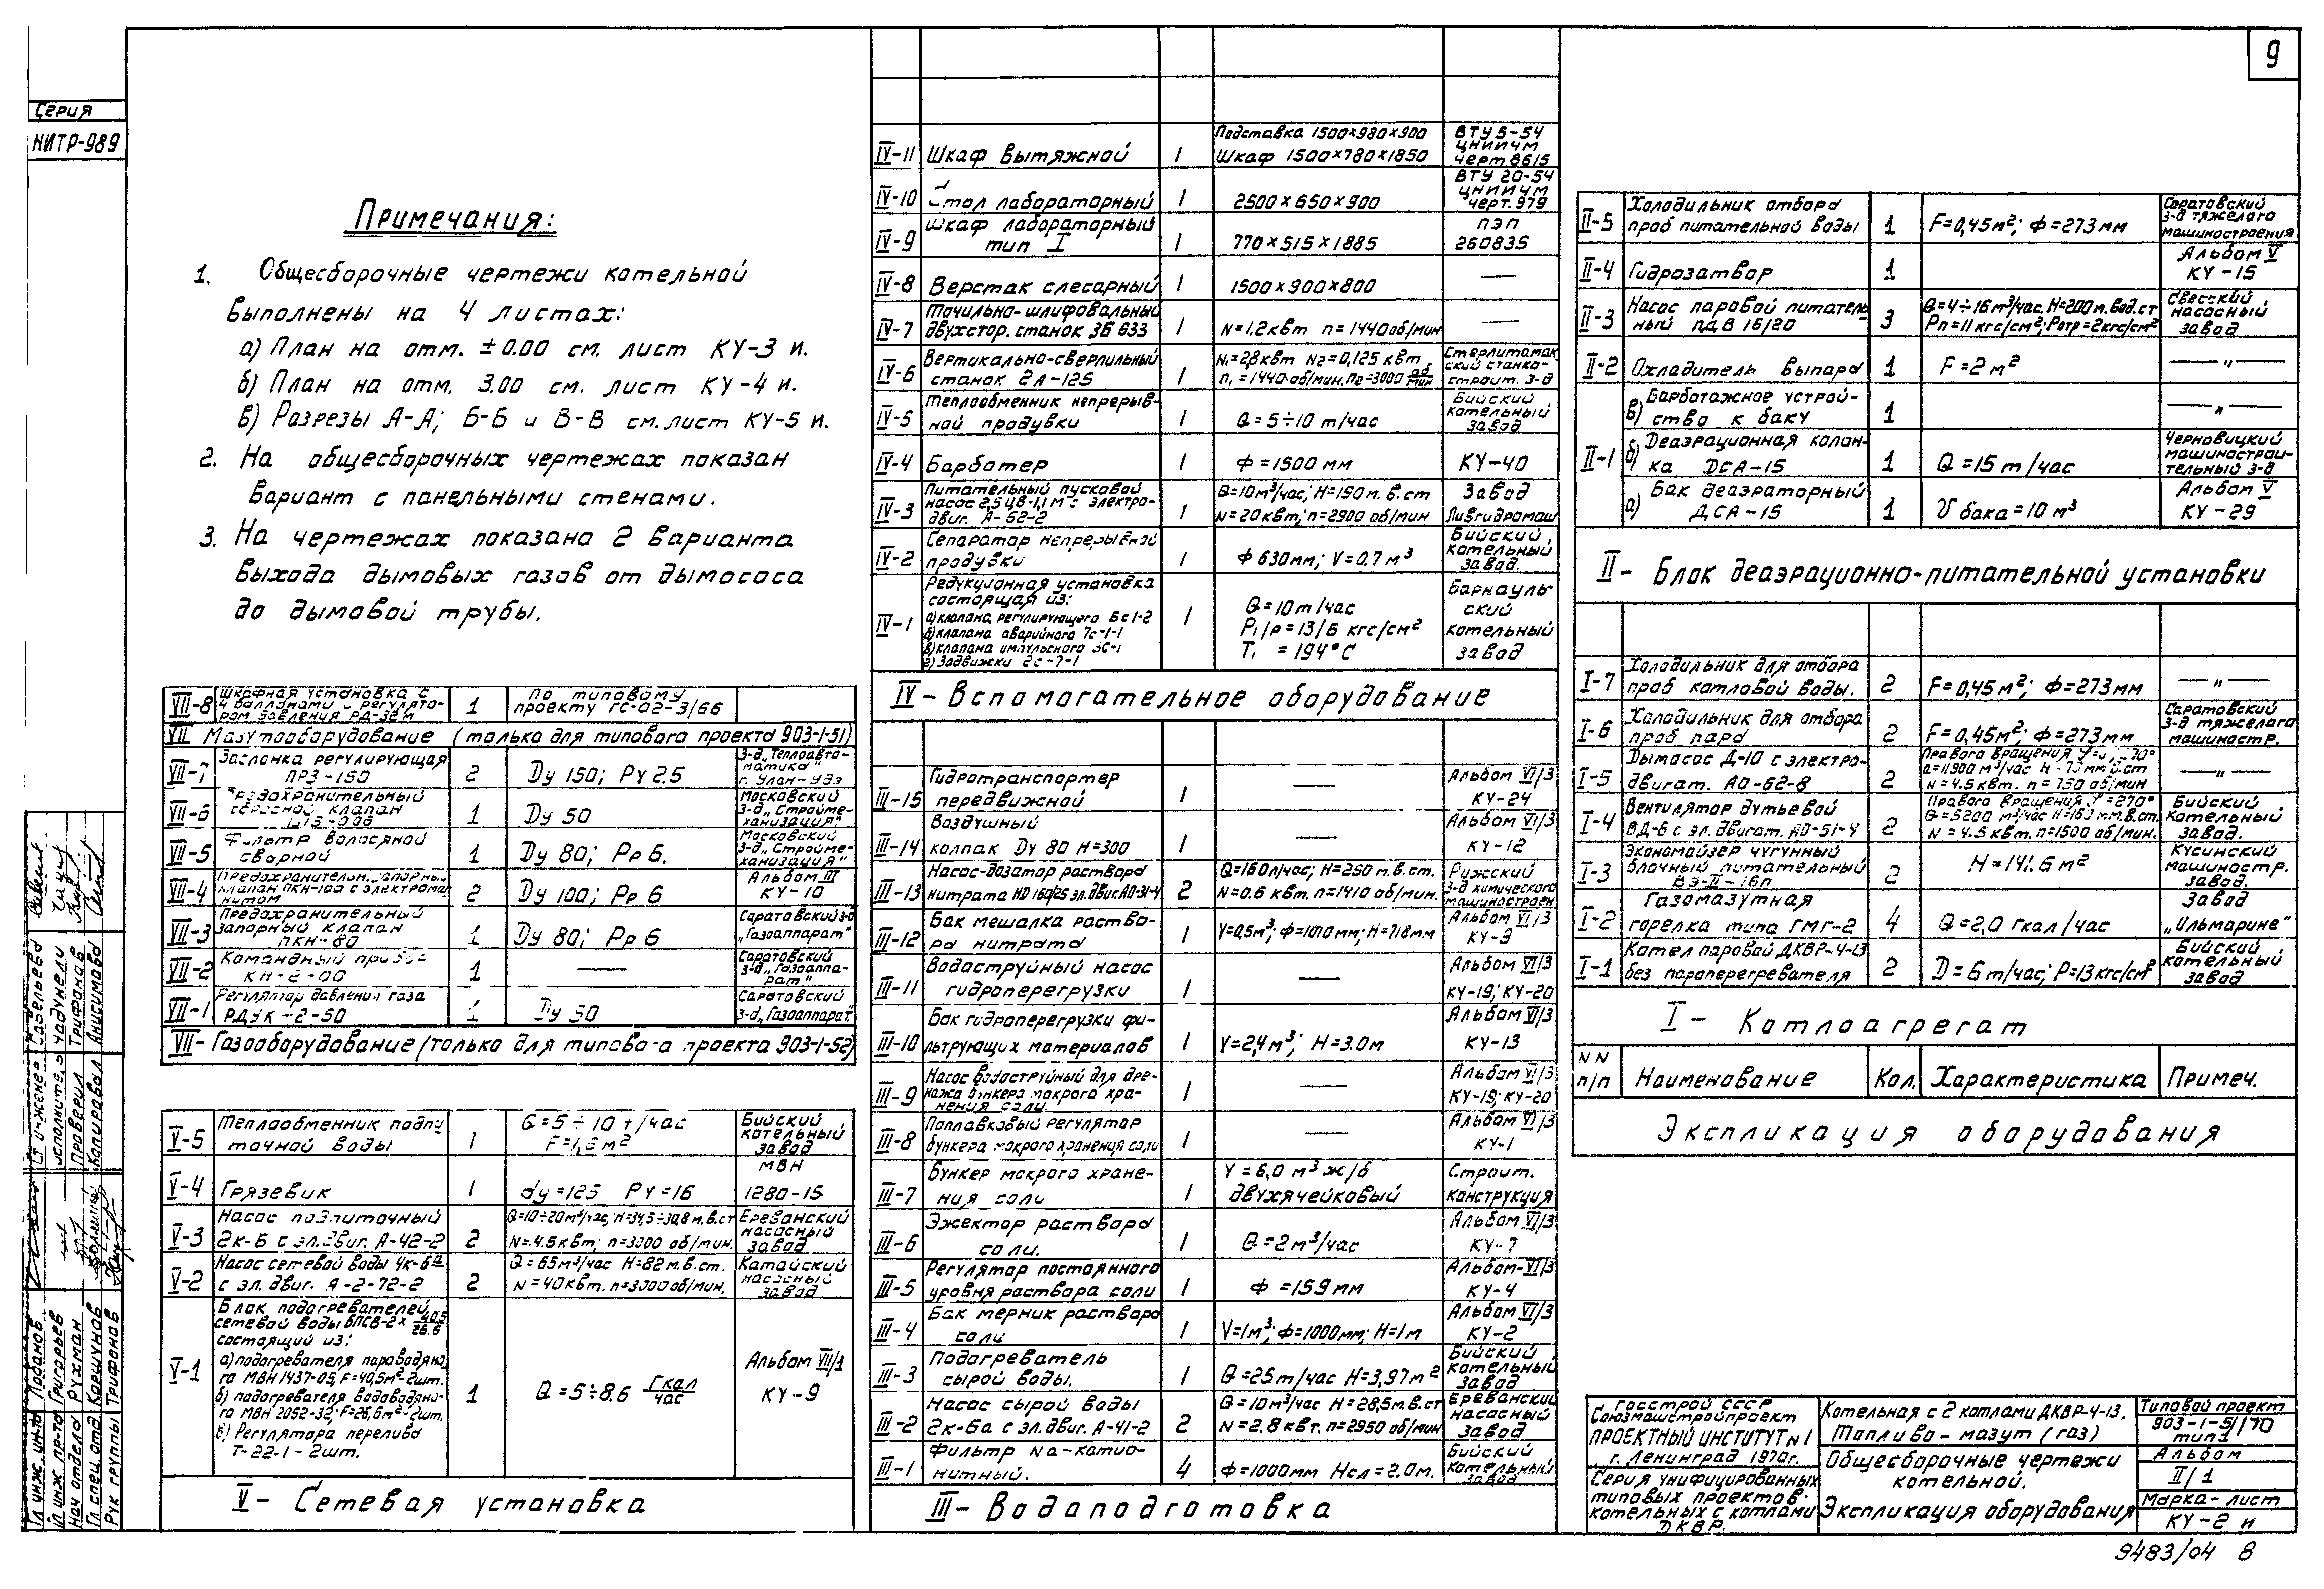 9
Серия
НИТР-989
Примечания:
1. Общесборочные чертежи котельной
выполнены на 4 листах:
а) План на отм. ±0.00 см. лист КУ-3 и.
б) План на отм. 3.00 см. лист КУ-4 и.
в) Разрезы А-А; Б-Б и В-В см. лист КУ-5 и.
2. На общесборочных чертежах показан
вариант с панельными стенами.
3. На чертежах показано 2 варианта
выхода дымовых газов от дымососа
до дымовой трубы.
VII-8 Шкафная установка с 4 баллонами и регулятором давления РД-32м 1 по типовому проекту ГС-02-3/66
VII Мазутооборудование (только для типового проекта 903-1-51)
VII-7 Заслонка регулирующая ПРЗ-150 2 Dy 150; Ру 2.5 З-д „Теплоавтоматика" г. Улан-Удэ
VII-6 Предохранительный сбросной клапан 1 Dy 50 Московский з-д „Строймеханизация"
VII-5 Фильтр волосяной сварной 1 Dy 80; Рр 6. Московский з-д „Строймеханизация"
VII-4 Предохранительн. запорный клапан ПКН-100 с электромагнитом 2 Dy 100; Рр 6 Альбом III КУ-10
VII-3 Предохранительный запорный клапан ПКН-80 1 Dy 80; Рр 6 Саратовский з-д „Газоаппарат"
VII-2 Командный прибор КН-2-00 1 — Саратовский з-д „Газоаппарат"
VII-1 Регулятор давления газа РДУК-2-50 1 Dy 50 Саратовский з-д „Газоаппарат
VII- Газооборудование (только для типового проекта 903-1-52)
V-5 Теплообменник подпиточной воды 1 G=5÷10 т/час Бийский котельный завод
V-4 Грязевик 1 dy=125 Ру=16 МВН 1280-15
V-3 Насос подпиточный 2К-6 с эл. двиг. А-42-2 2 Q=10÷20м³/час, Н=34,5÷30,8 м.в.ст N=4.5 квт; n=3000 об/мин. Ереванский насосный завод
V-2 Насос сетевой воды 4К-6а с эл. двиг. А-2-72-2 2 Q=65м³/час Н=82 м.в.ст. N=40квт. n=3000 об/мин. Катайский насосный завод
V-1 Блок подогревателей сетевой воды БПСВ-2× 40.5/26.6
состоящий из:
а) подогревателя пароводяного МВН 1437-05, F=40,5м²-2шт.
б) подогревателя водоводяного МВН 2052-32; F=26,6м²-2шт.
в) Регулятора перелива Т-22-1-2шт. 1 Q=5÷8.6 Гкал/час Альбом VII/1 КУ-9
V- Сетевая установка
IV-11 Шкаф вытяжной 1 Подставка 1500×980×900 Шкаф 1500×780×1850 ВТУ 5-54 ЦНИИЧМ черт 8615
IV-10 Стол лабораторный 1 2500×650×900 ВТУ 20-54 ЦНИИЧМ черт. 979
IV-9 Шкаф лабораторный тип I 1 770×515×1885 ПЭП 260835
IV-8 Верстак слесарный 1 1500×900×800 —
IV-7 Точильно-шлифовальный двухстор. станок 3Б 633 1 N=1,2 квт n=1440об/мин —
IV-6 Вертикально-сверлильный станок 2А-125 1 N₁=2,8 квт N2=0,125 квт n₁=1440 об/мин. n2=3000 об/мин Стерлитамакский станкостроит. з-д
IV-5 Теплообменник непрерывной продувки 1 Q=5÷10 т/час Бийский котельный завод
IV-4 Барботер 1 Ф=1500 мм КУ-40
IV-3 Питательный пусковой насос 2,5 ЦВ-1,1 М с электродвиг. А-62-2 1 Q=10м³/час; Н=150 м. в. ст N=20 квт; n=2900 об/мин Завод Ливгидромаш
IV-2 Сепаратор непрерывной продувки 1 Ф 630мм; V=0.7 м³ Бийский котельный завод.
IV-1 Редукционная установка состоящая из:
а) клапана регулирующего 6с1-2
б) клапана аварийного 7с-1-1
в) клапана импульсного 8с-1
г) Задвижки 2с-7-1 1 Q=10т/час Р₁/р=13/6 кгс/см² Т₁=194°С Барнаульский котельный завод
IV- Вспомогательное оборудование
III-15 Гидротранспортер передвижной 1 — Альбом VI/3 КУ-24
III-14 Воздушный колпак Dy 80 Н=300 1 — Альбом VI/3 КУ-12
III-13 Насос-дозатор раствора нитрата НД 160/25 эл. двиг. АО-31-4 2 Q=160л/час; Н=250 м.в.ст. N=0.6 квт. n=1410 об/мин. Рижский з-д химического машиностроен
III-12 Бак мешалка раствора нитрата 1 V=0,5м³; Ф=1010 мм; Н=718мм Альбом VI/3 КУ-9
III-11 Водоструйный насос гидроперегрузки 1 — Альбом VI/3 КУ-19; КУ-20
III-10 Бак гидроперегрузки фильтрующих материалов 1 V=2,4м³; Н=3.0м Альбом VI/3 КУ-13
III-9 Насос водоструйный для дренажа бункера мокрого хранения соли. 1 — Альбом VI/3 КУ-19; КУ-20
III-8 Поплавковый регулятор бункера мокрого хранения соли 1 — Альбом VI/3 КУ-1
III-7 Бункер мокрого хранения соли 1 V=6,0 м³ ж/б двухячейковый Строит. конструкция
III-6 Эжектор раствора соли. 1 Q=2м³/час Альбом VI/3 КУ-7
III-5 Регулятор постоянного уровня раствора соли 1 Ф=159 мм Альбом-VI/3 КУ-4
III-4 Бак мерник раствора соли 1 V=1м³; Ф=1000мм; Н=1м Альбом VI/3 КУ-2
III-3 Подогреватель сырой воды. 1 Q=25т/час Н=3,97м² Бийский котельный завод
III-2 Насос сырой воды 2К-6а с эл. двиг. А-41-2 2 Q=10м³/час Н=28,5м.в.ст N=2.8 квт. n=2950 об/мин Ереванский насосный завод
III-1 Фильтр Na-катионитный. 4 Ф=1000мм Нсл=2.0м. Бийский котельный завод
III- Водоподготовка
II-5 Холодильник отбора проб питательной воды 1 F=0,45м²; Ф=273мм Саратовский з-д тяжелого машиностроения
II-4 Гидрозатвор 1 Альбом V КУ-15
II-3 Насос паровой питательный ПДВ 16/20 3 Q=4÷16м³/час. Н=200м.вод.ст Рп=11кгс/см²; Ротр=2кгс/см² Свесский насосный завод
II-2 Охладитель выпара 1 F=2м² —"—
II-1 в) Барботажное устройство к баку 1 —"—
б) Деаэрационная колонка ДСА-15 1 Q=15т/час Черновицкий машиностроительный з-д
а) Бак деаэраторный ДСА-15 1 V бака=10м³ Альбом V КУ-29
II- Блок деаэрационно-питательной установки
I-7 Холодильник для отбора проб котловой воды. 2 F=0,45м²; Ф=273мм —"—
I-6 Холодильник для отбора проб пара 2 F=0,45м²; Ф=273мм Саратовский з-д тяжелого машиностр.
I-5 Дымосос Д-10 с электродвигат. АО-62-8 2 Правого вращения Q=11900 м³/час N=4.5 квт. n=750 об/мин —"—
I-4 Вентилятор дутьевой ВД-6 с эл. двигат. АО-51-4 2 Правого вращения φ=270° Q=5200 м³/час Н=160 м.м.в.ст. N=4.5 квт. n=1500 об/мин. Бийский котельный завод.
I-3 Экономайзер чугунный блочный питательный ВЭ-II-16п 2 Н=141.6 м² Кусинский машиностр. завод.
I-2 Газомазутная горелка типа ГМГ-2 4 Q=2,0 Гкал/час Завод „Ильмарине"
I-1 Котел паровой ДКВР-4-13 без пароперегревателя 2 D=6т/час; Р=13кгс/см² Бийский котельный завод
I- Котлоагрегат
NN п/п Наименование Кол. Характеристика Примеч.
Экспликация оборудования
Госстрой СССР
Союзмашстройпроект
ПРОЕКТНЫЙ ИНСТИТУТ N1
г. Ленинград 1970г.
Серия унифицированных
типовых проектов
котельных с котлами
ДКВР.
Котельная с 2 котлами ДКВР-4-13.
Топливо-мазут (газ)
Общесборочные чертежи
котельной.
Экспликация оборудования
Типовой проект
903-1-51/70
тип 1
Альбом
II/1
Марка-лист
КУ-2 и
9483/04 8
Гл инж. ин-та Лобанов
Гл инж пр-та Григорьев
Нач отдела Рухман
Гл спец. отд. Коршунов
Рук группы Трифонов
Ст инженер Газельева
Исполнитель
Проверил Трифонов
Копировал Анисимова